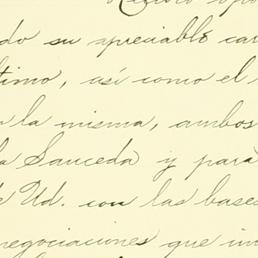 do su apreciable car
timo, así como el
n la misma, ambos
la Sauceda y para
de Ud. con las bases
negociaciones que in